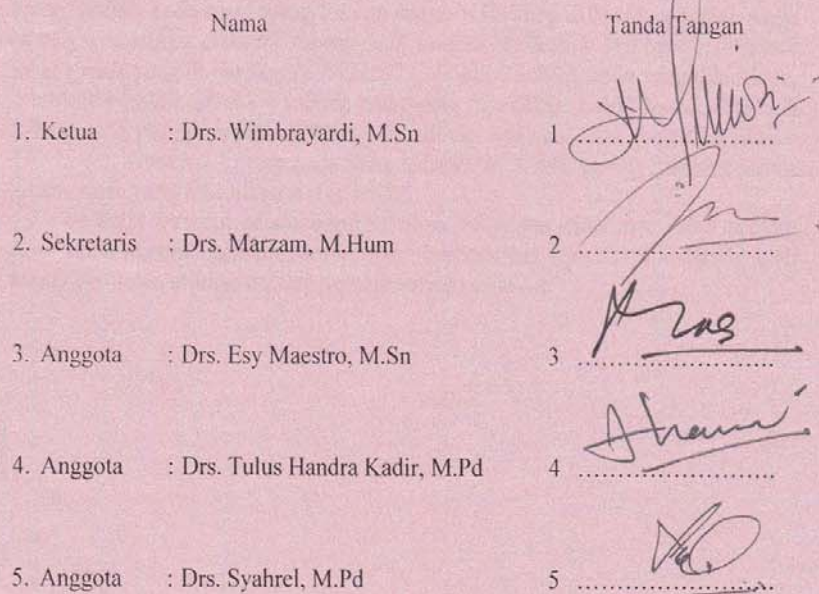 Nama Tanda Tangan
1. Ketua : Drs. Wimbrayardi, M.Sn 1 ..........................
2. Sekretaris : Drs. Marzam, M.Hum 2 ..........................
3. Anggota : Drs. Esy Maestro, M.Sn 3 ..........................
4. Anggota : Drs. Tulus Handra Kadir, M.Pd 4 ..........................
5. Anggota : Drs. Syahrel, M.Pd 5 ..........................